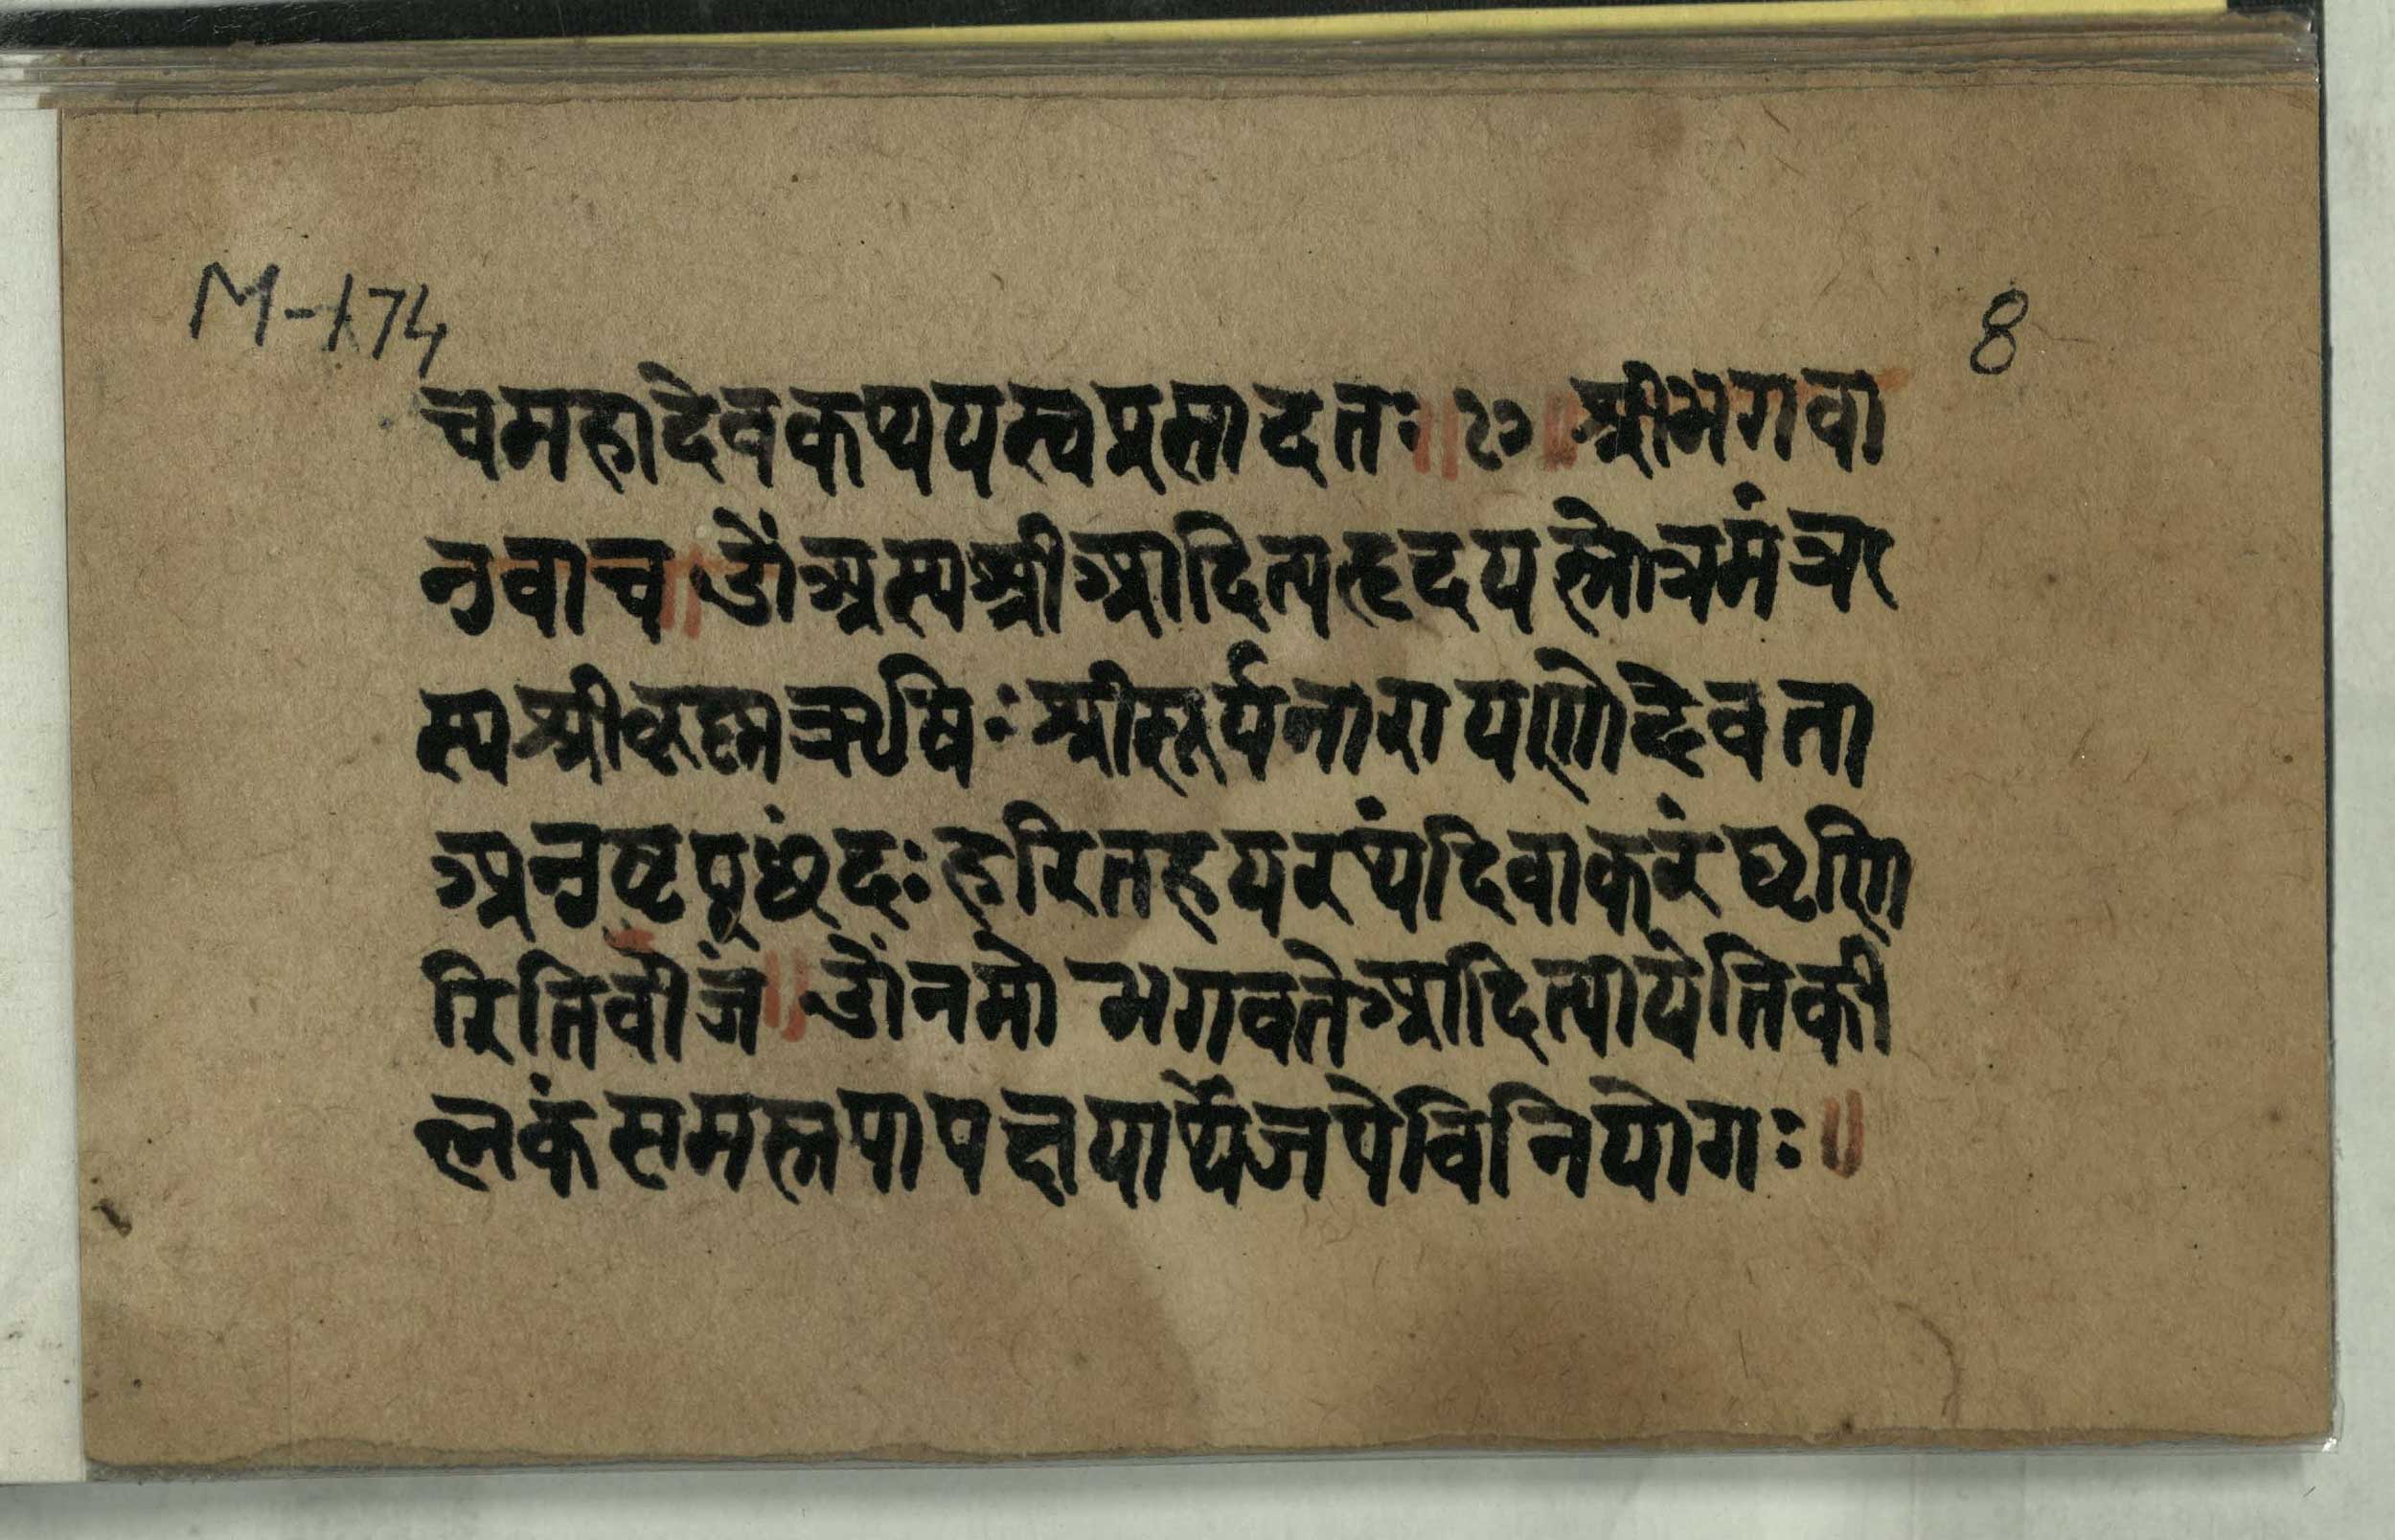 M-174
8
चमहादेवकथयस्वप्रसादतः॥२०॥श्रीभगवा
नुवाच॥ॐअस्यश्रीआदित्यहृदयस्तोत्रमंत्र
स्यश्रीकृष्णऋषिः श्रीसूर्यनारायणोदेवता
अनुष्टुप्छंदः हरितहयरथंदिवाकरंघृणि
रितिवीजं॥ॐनमो भगवतेआदित्यायेतिकी
लकंसमस्तपापक्षयार्थेजपेविनियोगः॥